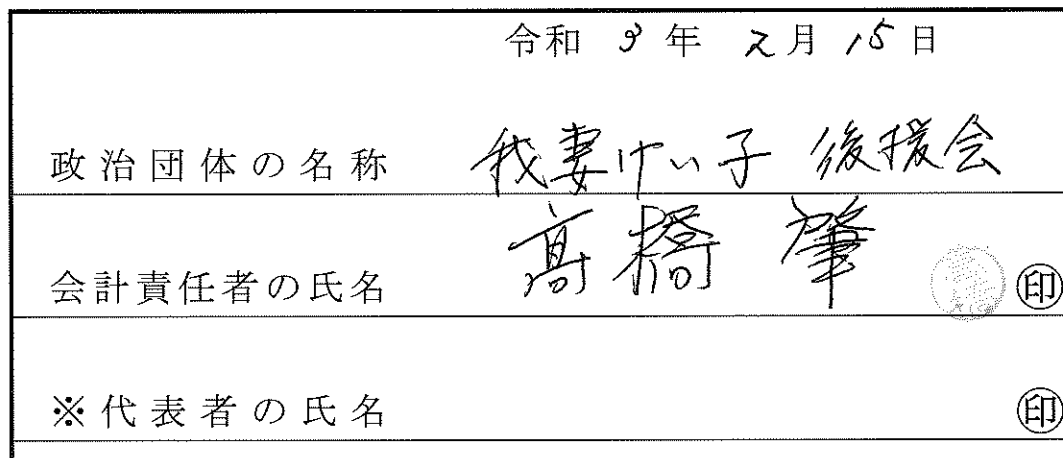 令和 3 年 2 月 15 日
政治団体の名称 我妻けい子 後援会
会計責任者の氏名 髙橋 肇 ㊞
※代表者の氏名 ㊞